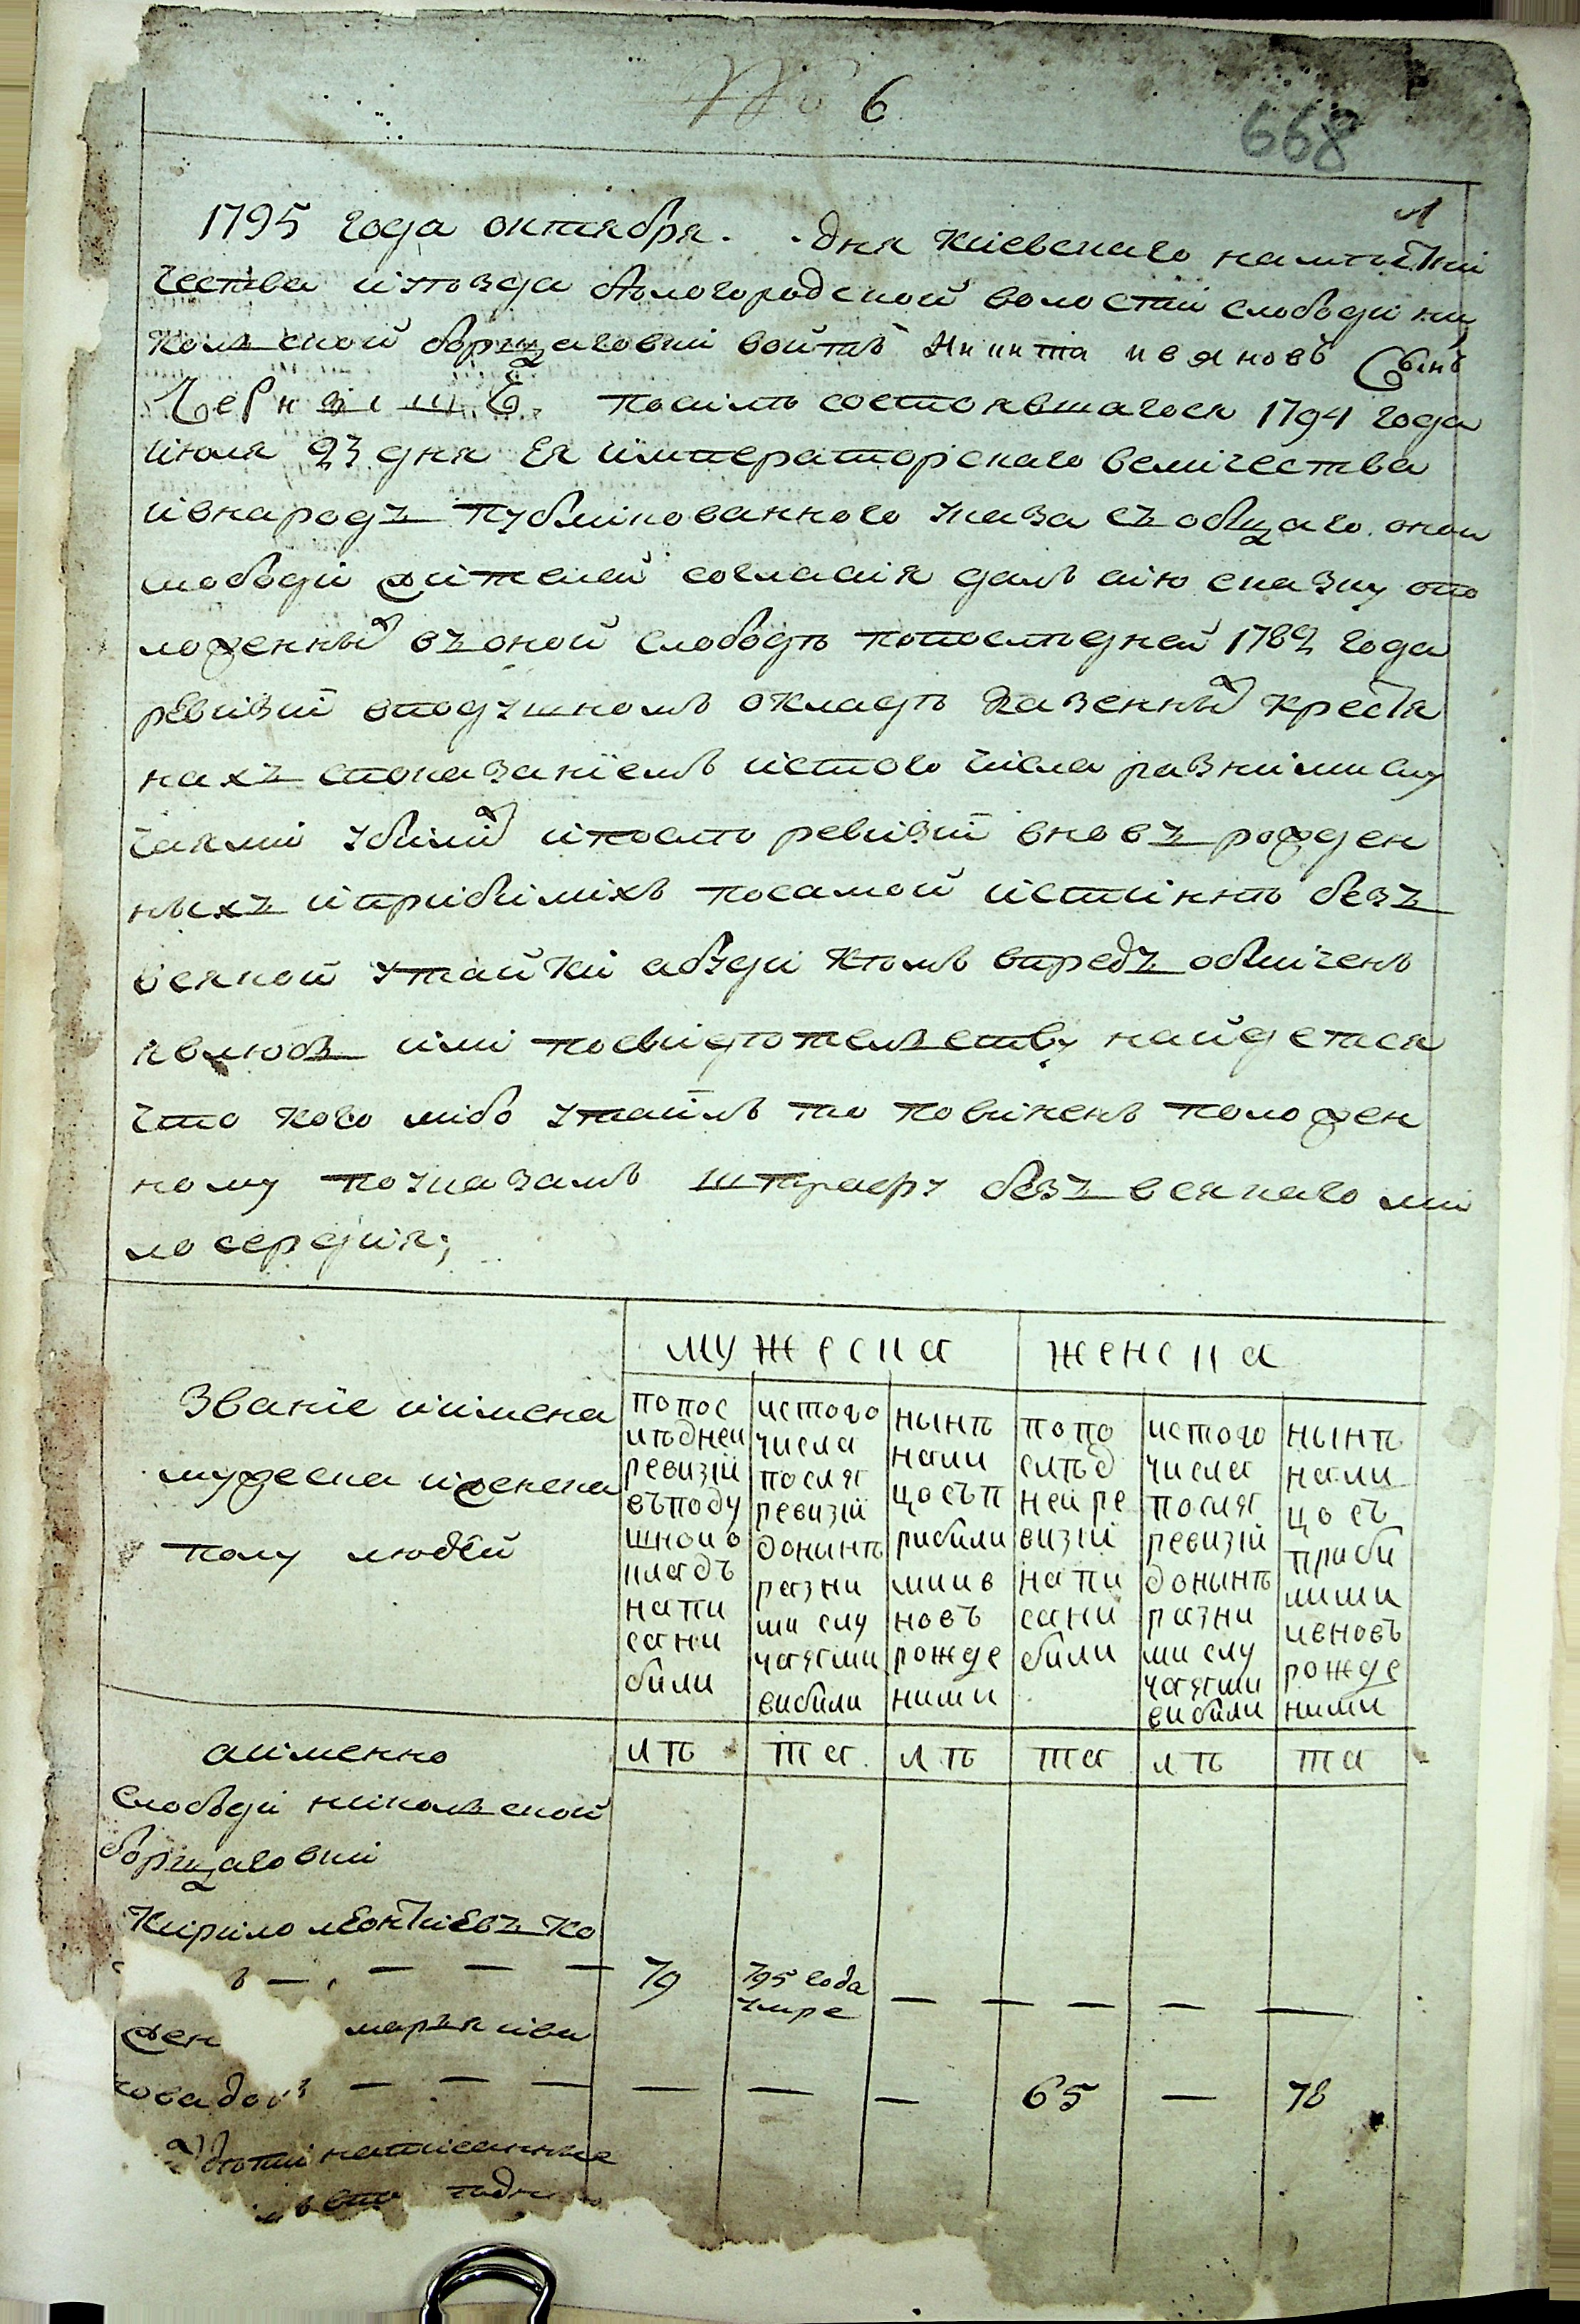 № 6
668
1
1795 года октября. . дня киевскаго намѣстни
чества иуѣзда бѣлогородской волости слободи ни
кольской борщаговки войтъ Никита ивановъ Синъ
Чернѣшѣ. посилѣ состоявшагося 1794 года
июля 23 дня Ея императорскаго величества
ивнародъ публикованного указа съобщаго оной
слободи жителей согласія далъ сию сказку опо
ложенных въоной слободѣ попоследней 1782 года
ревизіи вподушномъ окладѣ казенных крестя
нахъ спокaзаніемъ истого числа разними слу
чаями убилих ипослѣ ревизіи вновъ рожден
ныхъ иприбилихъ посамой истиннѣ безъ
всякой утайки абуди кѣмъ впредъ обличенъ
явлюсъ или посвидѣтелъству найдется
что кого либо утаилъ то повиненъ положен
ному поуказамъ штрафу безъ всякаго ми
лосердия;
мужеска женска
Званіе иимена
мужеска иженска
полу людей
попос
лѣдней
ревизіи
въподу
шной о
кладъ
напи
сани
били
истого
числа
послѧ
ревизіи
донынѣ
разни
ми слу
чаями
вибили
нынѣ
нали
цосъп
рибили
мии в
новъ
рожде
ними
попо
слѣд
ней ре
визіи
напи
сани
били
истого
числа
послѧ
ревизіи
донынѣ
разни
ми слу
чаями
вибили
нынѣ
нали
цосъ
приби
лими
ивновъ
рожде
ними
аименно
лѣ та лѣ та лѣ та
слободи никольской
борщаговки
Кирило леонтиевъ Ко
ъ — — — — 79 795 года умре — — — — —
жен марья ива
нова доч — — — — — — 65 — 78
дѣти написанние